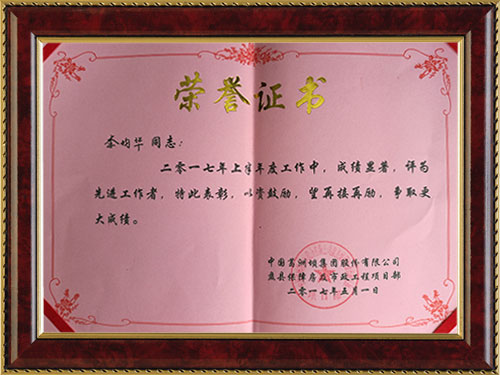 荣誉证书
李均华 同志:
二零一七年上半年度工作中，成绩显著，评为
先进工作者，特此表彰，以资鼓励，望再接再励，争取更
大成绩。
中国葛洲坝集团股份有限公司
盘县保障房及市政工程项目部
二零一七年五月一日